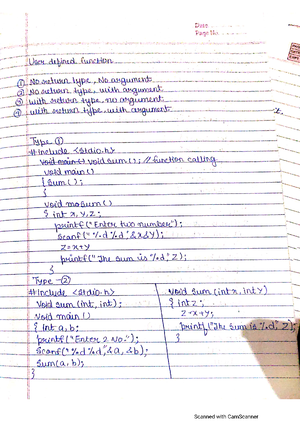 Date
Page No.
User defined function
① No return type, No argument
② No return type, with argument
③ with return type, no argument
④ with return type, with argument
Type ①
# Include <stdio.h>
void main() void sum(); // function calling
void main()
{ sum();
}
void sum()
{ int x, y, z;
printf("Enter two number");
scanf("%d %d", &x &y);
z=x+y
printf(" The sum is %d", z);
}
Type -②
# Include <stdio.h>
void sum (int, int);
void main()
{ int a, b;
printf("Enter 2 No.");
scanf("%d %d", &a, &b);
sum(a, b);
}
void sum (int x, int y)
{ int z;
z=x+y;
printf("The sum is %d", z);
}
Scanned with CamScanner